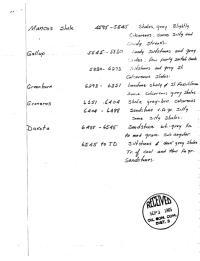 Mancos Shale 4595-5845 Shales, grey Slightly
Calcareous, some Silty and
Sandy Streaks.
Gallup 5845-5930 Sandy Siltstones and grey
Shales
5930-6293 Siltstones and grey Sl
Calcareous Shales.
Greenhorn 6293-6351
Some Calcareous grey Shales
Graneros 6351-6404 Shale, grey-brn. Calcareous
6404-6498 Sandstone v. fn. gr. Silty
Some Silty Shales.
Dakota 6498-6545 Sandstone wh-grey fn
to med grain. Sub angular
6545 to TD Siltstones & dark grey Shales
Tr. of coal and thin fn gr.
Sandstones.
RECEIVED
SEP 3
OIL CON. COM.
DIST. 3